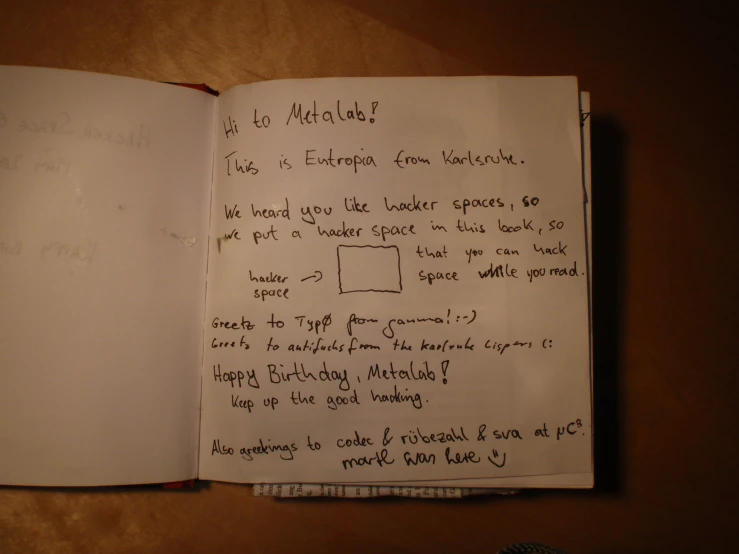 Hi to Metalab!
This is Entropia from Karlsruhe.
We heard you like hacker spaces, so
we put a hacker space in this book, so
that you can hack
hacker → space while you read.
space
Greetz to TypØ from gamma! :-)
Greetz to antifuchs from the Karlsruhe Lispers (:
Happy Birthday, Metalab!
Keep up the good hacking.
Also greetings to codec & rübezahl & sva at µC³.
was here